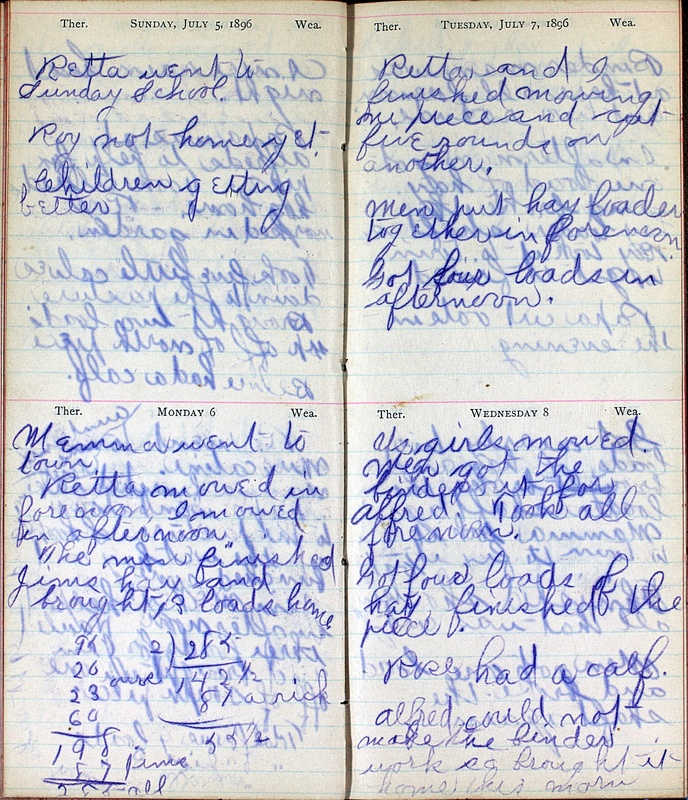 Ther. SUNDAY, JULY 5, 1896 Wea.
Retta went to
Sunday School.
Roy not home yet.
Children getting
better
Ther. MONDAY 6 Wea.
Mamma went to
town
Retta mowed in
forenoon I mowed
in afternoon.
The men finished
Jims hay and
brought 3 loads home
95
20
23
60
198
87 Jims
285 all
2) 285
ours 142 1/2
87 a rick
55 1/2
Ther. TUESDAY, JULY 7, 1896 Wea.
Retta and I
finished mowing
on piece and cut
five rounds on
another.
Men put hay loader
together in forenoon
Got four loads in
afternoon.
Ther. WEDNESDAY 8 Wea.
Us girls mowed.
Men got the
binder out for
Alfred. Took all
forenoon.
Got four loads of
hay finished the
piece.
Rose had a calf.
Alfred could not
make the binder
work so brought it
home this morn